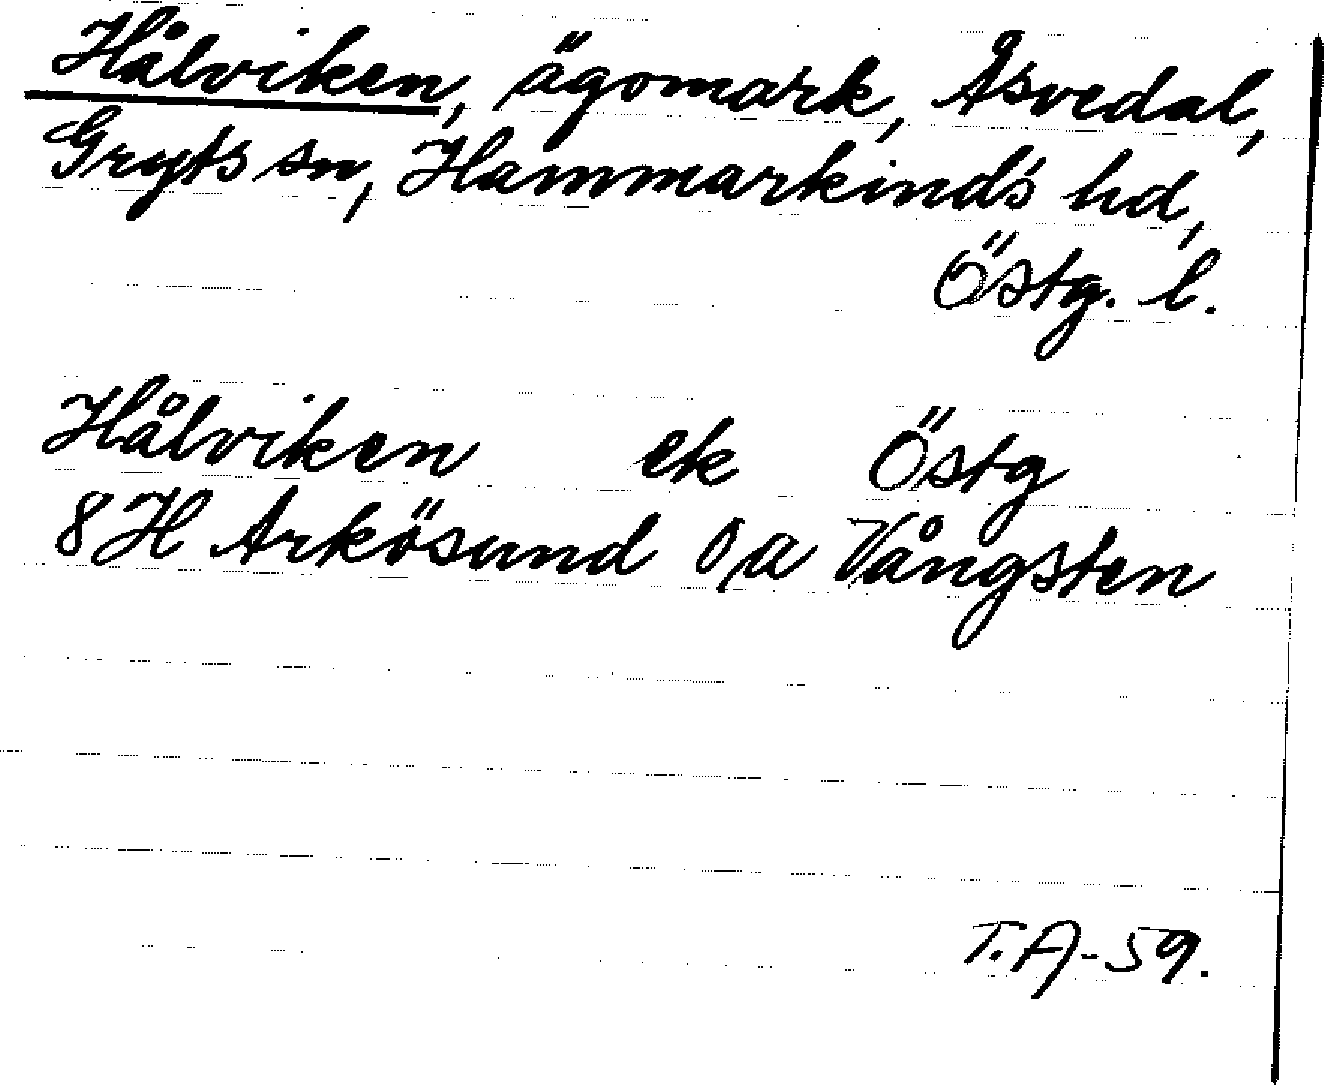 Hålviken, ägomark, Åsvedal,
Gryts sn, Hammarkinds hd,
Östg. l.
Hålviken ek Östg
8H Arkösund 0/a Vångsten
T.A-59.